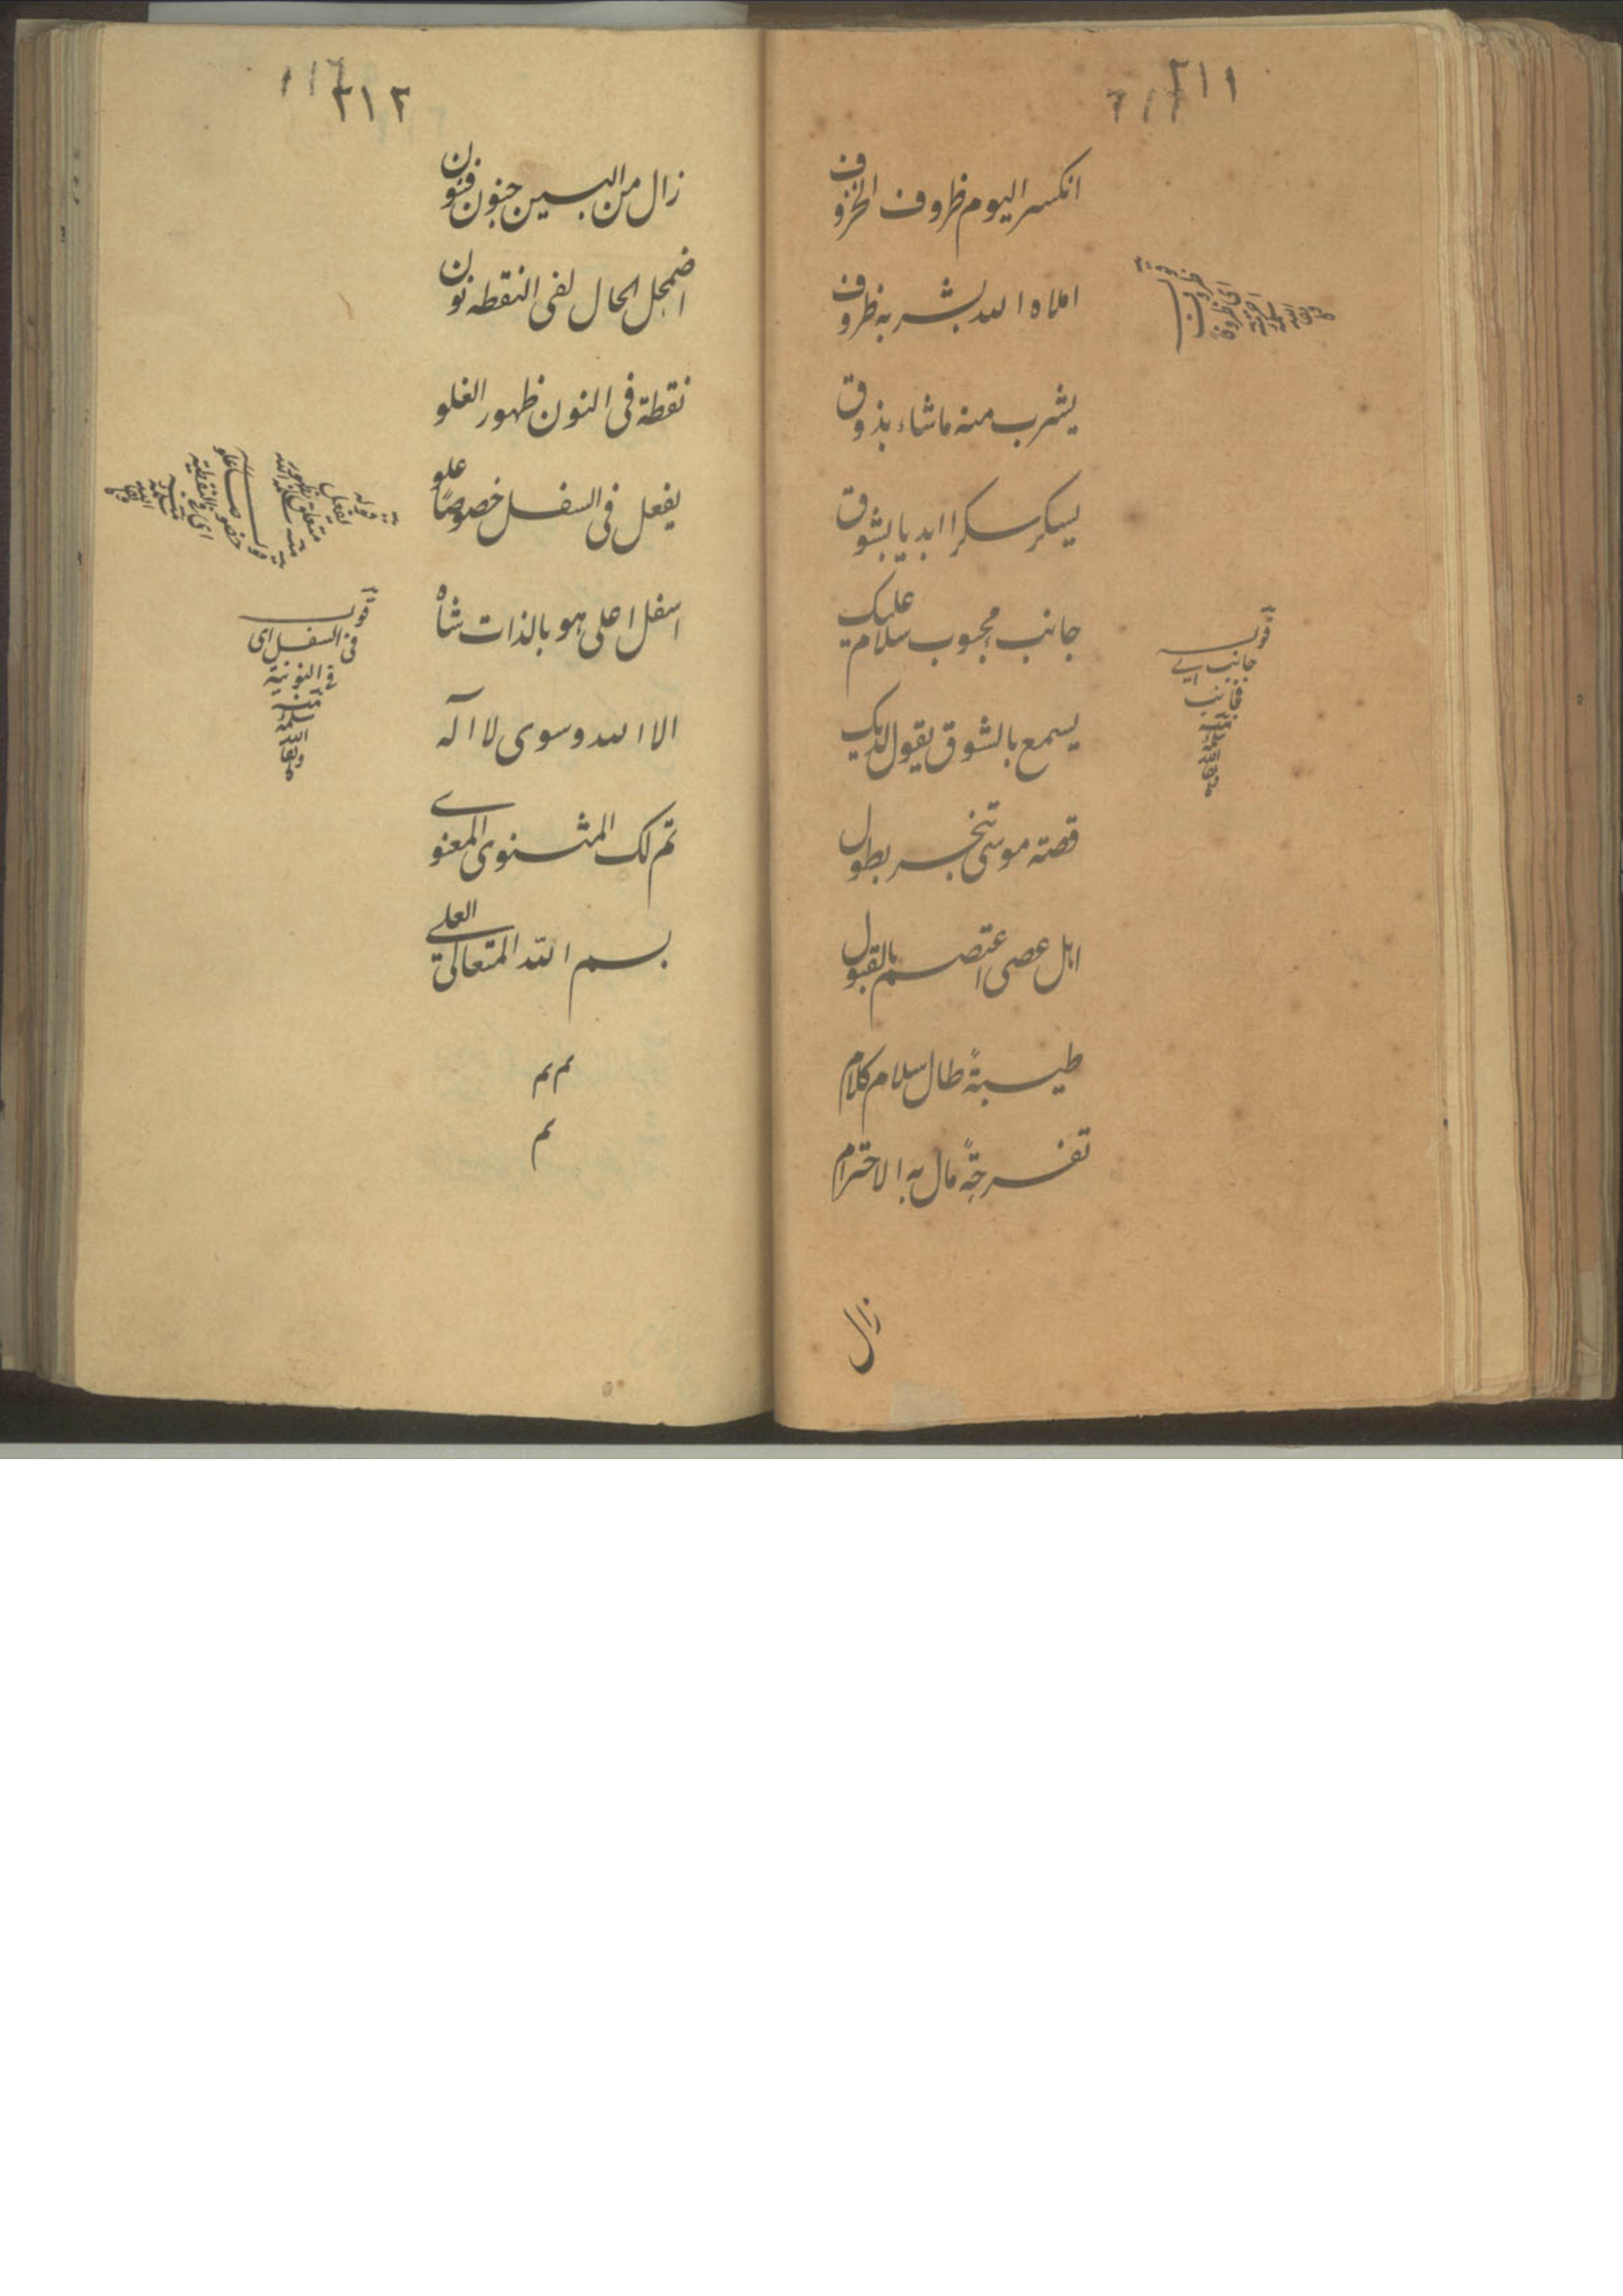 ٢١١
انکسر الیوم ظروف الخزوف
املاه الله بشربه ظروف
یشرب منه ماشاء بذوق
یسکر سکرا ابدیا بشوق
جانب محبوب سلام علیک
یسمع بالشوق یقول لدیک
قصته موسی تخبر بطول
اهل عصی اعتصم بالقبول
طیبةً طال سلام کلام
تفرجةً مال به الاحترام
زال
قوله
جانب ای
منه
سلمه
الله
٢١٢
زال من البین جنون فنون
اضمحل الحال لفی النقطه نون
نقطة فی النون ظهور الغلو
یفعل فی السفل خصوصًا علو
اسفل اعلی هو بالذات شاه
الا الله وسوی لا اله
تم لک المثنوی المعنوی
بسم الله المتعالی العلی
م م
م
قوله
یفعل
متعلق بظهور
خصوصا علو
ای فی النقطیة
قوله
فی السفل ای
فی النونیة
منه
سلمه
الله